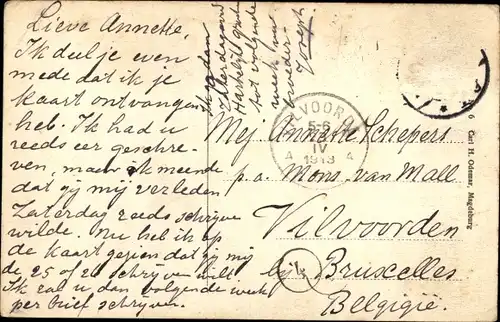 Lieve Annette,
Ik deel je even
mede dat ik je
kaart ontvangen
heb. Ik had u
reeds eer geschre-
ven, maar ik meende
dat gij mij verleden
Zaterdag reeds schrijven
wilde. Nu heb ik op
de kaart gezien dat gij mij
de 25 of 26 schrijven wilt
Ik zal u dan volgende week
per brief schrijven.
Ik ga dan
Zaterdagavond
Hartelijk gegroet
tot volgende
week van
broeder
Joseph
VILVOORDE
5-6
IV
1913
A A
Mej Annette Schepers
p.a. Mons. van Mall
Vilvoorden
bij Bruxelles
Belgigië.
6 Carl H. Odemar, Magdeburg